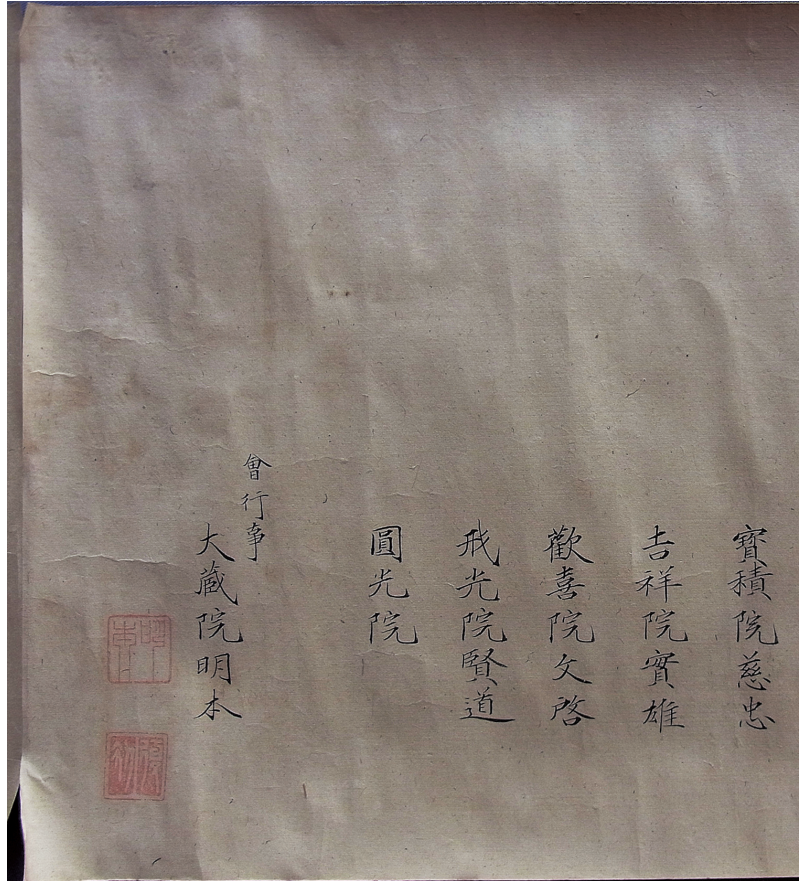 寳積院慈忠
吉祥院實雄
歡喜院文啓
戒光院賢道
圓光院
會行事
大蔵院明本